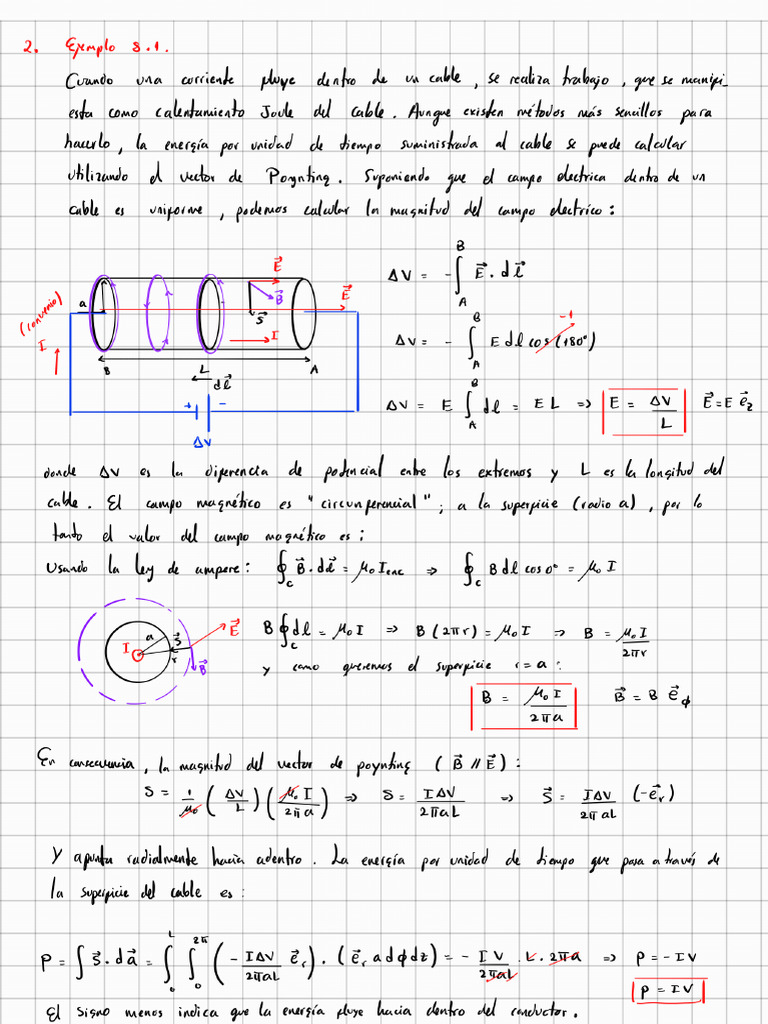 2. Ejemplo 8.1.
Cuando una corriente fluye dentro de un cable, se realiza trabajo, que se manifi_
esta como calentamiento Joule del cable. Aunque existen métodos más sencillos para
hacerlo, la energía por unidad de tiempo suministrada al cable se puede calcular
utilizando el vector de Poynting. Suponiendo que el campo electrica dentro de un
cable es uniforme, podemos calcular la magnitud del campo electrico:
ΔV = -∫_A^B E⃗ . dl⃗
(convenio) I
a E⃗ B⃗ E⃗ S⃗ I
B L A
dl⃗
+ -
ΔV
ΔV = -∫_A^B E dl cos(180°) -1
ΔV = E ∫_A^B dl = EL => E = ΔV/L E⃗ = E e⃗_z
donde ΔV es la diferencia de potencial entre los extremos y L es la longitud del
cable. El campo magnético es "circunferencial"; a la superficie (radio a), por lo
tanto el valor del campo magnético es:
Usando la ley de ampere: ∮_c B⃗ . dl⃗ = μ₀ I_enc => ∮_c B dl cos 0° = μ₀ I
I a S⃗ r E⃗ B⃗
B ∮_c dl = μ₀ I => B(2πr) = μ₀ I => B = μ₀ I/2πr
y como queremos el superficie r = a :
B = μ₀ I/2πa B⃗ = B e⃗_ϕ
En consecuencia, la magnitud del vector de poynting (B⃗ // E⃗) :
S = 1/μ₀ (ΔV/L) (μ₀ I/2πa) => S = IΔV/2πaL => S⃗ = IΔV/2πaL (-e⃗_r)
Y apunta radialmente hacia adentro. La energía por unidad de tiempo que pasa a través de
la superficie del cable es:
P = ∫ S⃗ . da⃗ = ∫_0^L ∫_0^2π (-IΔV/2πaL e⃗_r) . (e⃗_r a dϕ dz) = - IV/2πaL . L . 2πa => P = -IV
P = IV
El signo menos indica que la energía fluye hacia dentro del conductor.